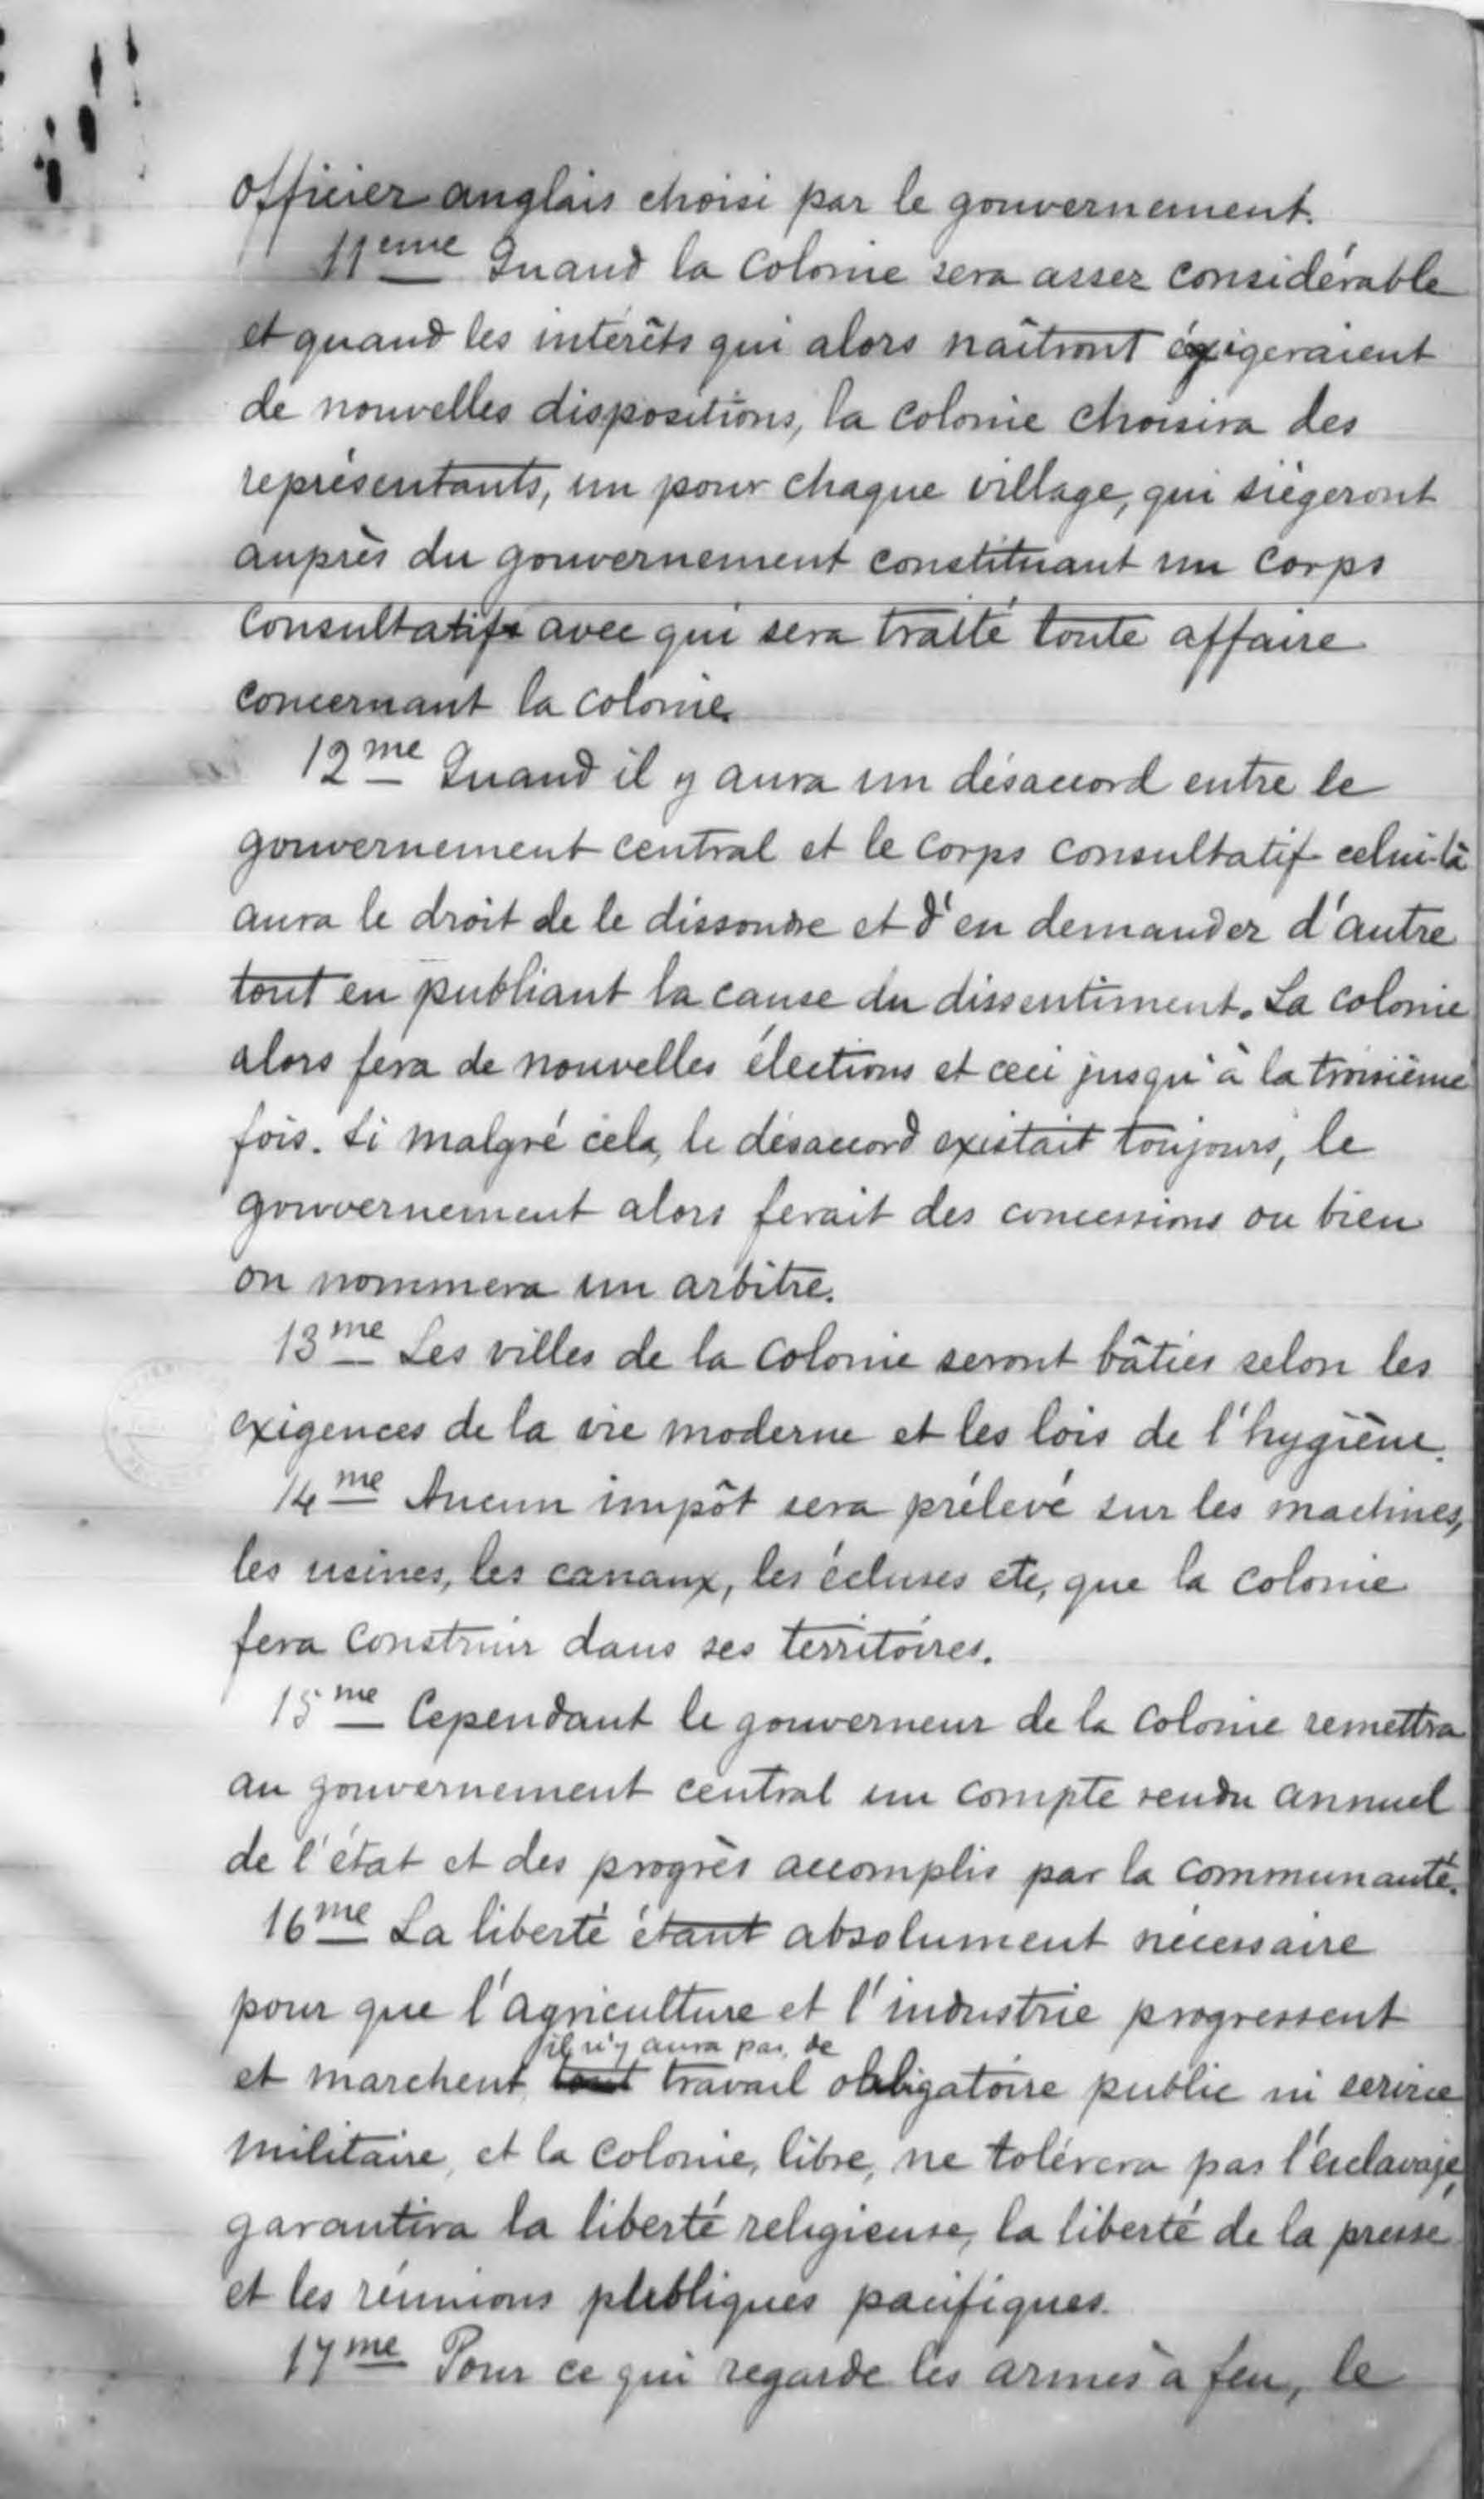 officier anglais choisi par le gouvernement.
11ème Quand la colonie sera assez considérable
et quand les intérêts qui alors naîtront éxigeraient
de nouvelles dispositions, la colonie choisira des
représentants, un pour chaque village, qui siègeront
auprès du gouvernement constituant un corps
consultatif avec qui sera traité toute affaire
concernant la colonie.
12me Quand il y aura un désaccord entre le
gouvernement central et le corps consultatif celui-là
aura le droit de le dissoudre et d'en demander d'autre
tout en publiant la cause du dissentiment. La colonie
alors fera de nouvelles élections et ceci jusqu'à la troisième
fois. Si malgré cela, le désaccord existait toujours, le
gouvernement alors ferait des concessions ou bien
on nommera un arbitre.
13me Les villes de la colonie seront bâties selon les
exigences de la vie moderne et les lois de l'hygiène.
14me Aucun impôt sera prélevé sur les machines,
les usines, les canaux, les écluses etc, que la colonie
fera construir dans ses territoires.
15me Cependant le gouverneur de la colonie remettra
au gouvernement central un compte rendu annuel
de l'état et des progrès accomplis par la communauté.
16me La liberté étant absolument nécessaire
pour que l'agriculture et l'industrie progressent
il n'y aura pas de
et marchent, tout travail obligatoire public ni service
militaire, et la colonie, libre, ne tolérera pas l'esclavage,
garantira la liberté religieuse, la liberté de la presse
et les réunions publiques pacifiques.
17me Pour ce qui regarde les armes à feu, le